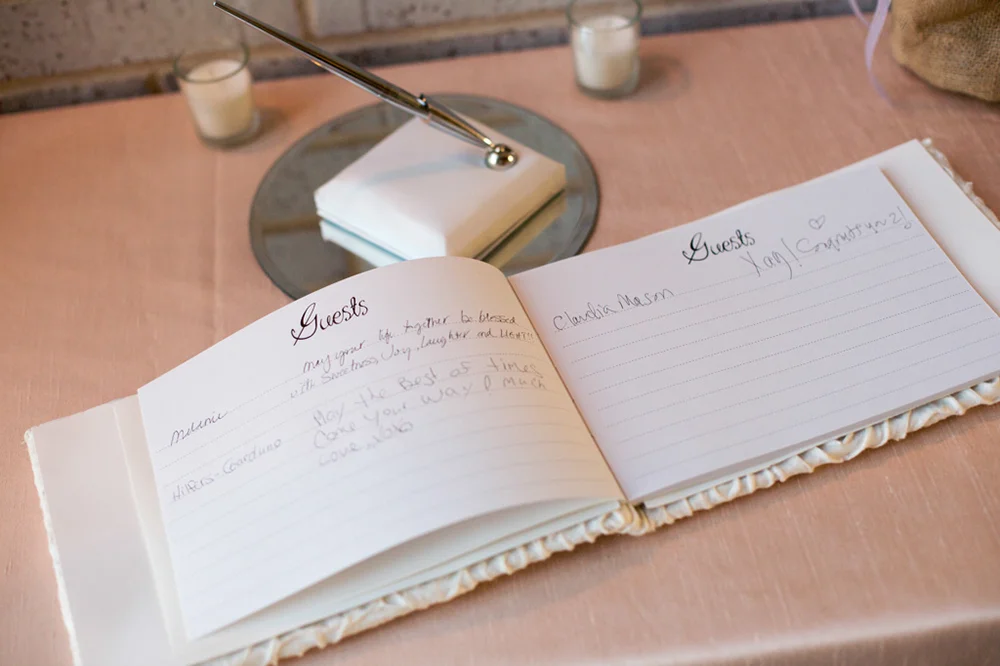 Guests
may your life together be blessed
with Sweetness, Joy, Laughter and LIGHT!
Melanie
May the Best of times
Come Your Way & Much
Love, xoxo
Guests
Yay!
Claudia Mason